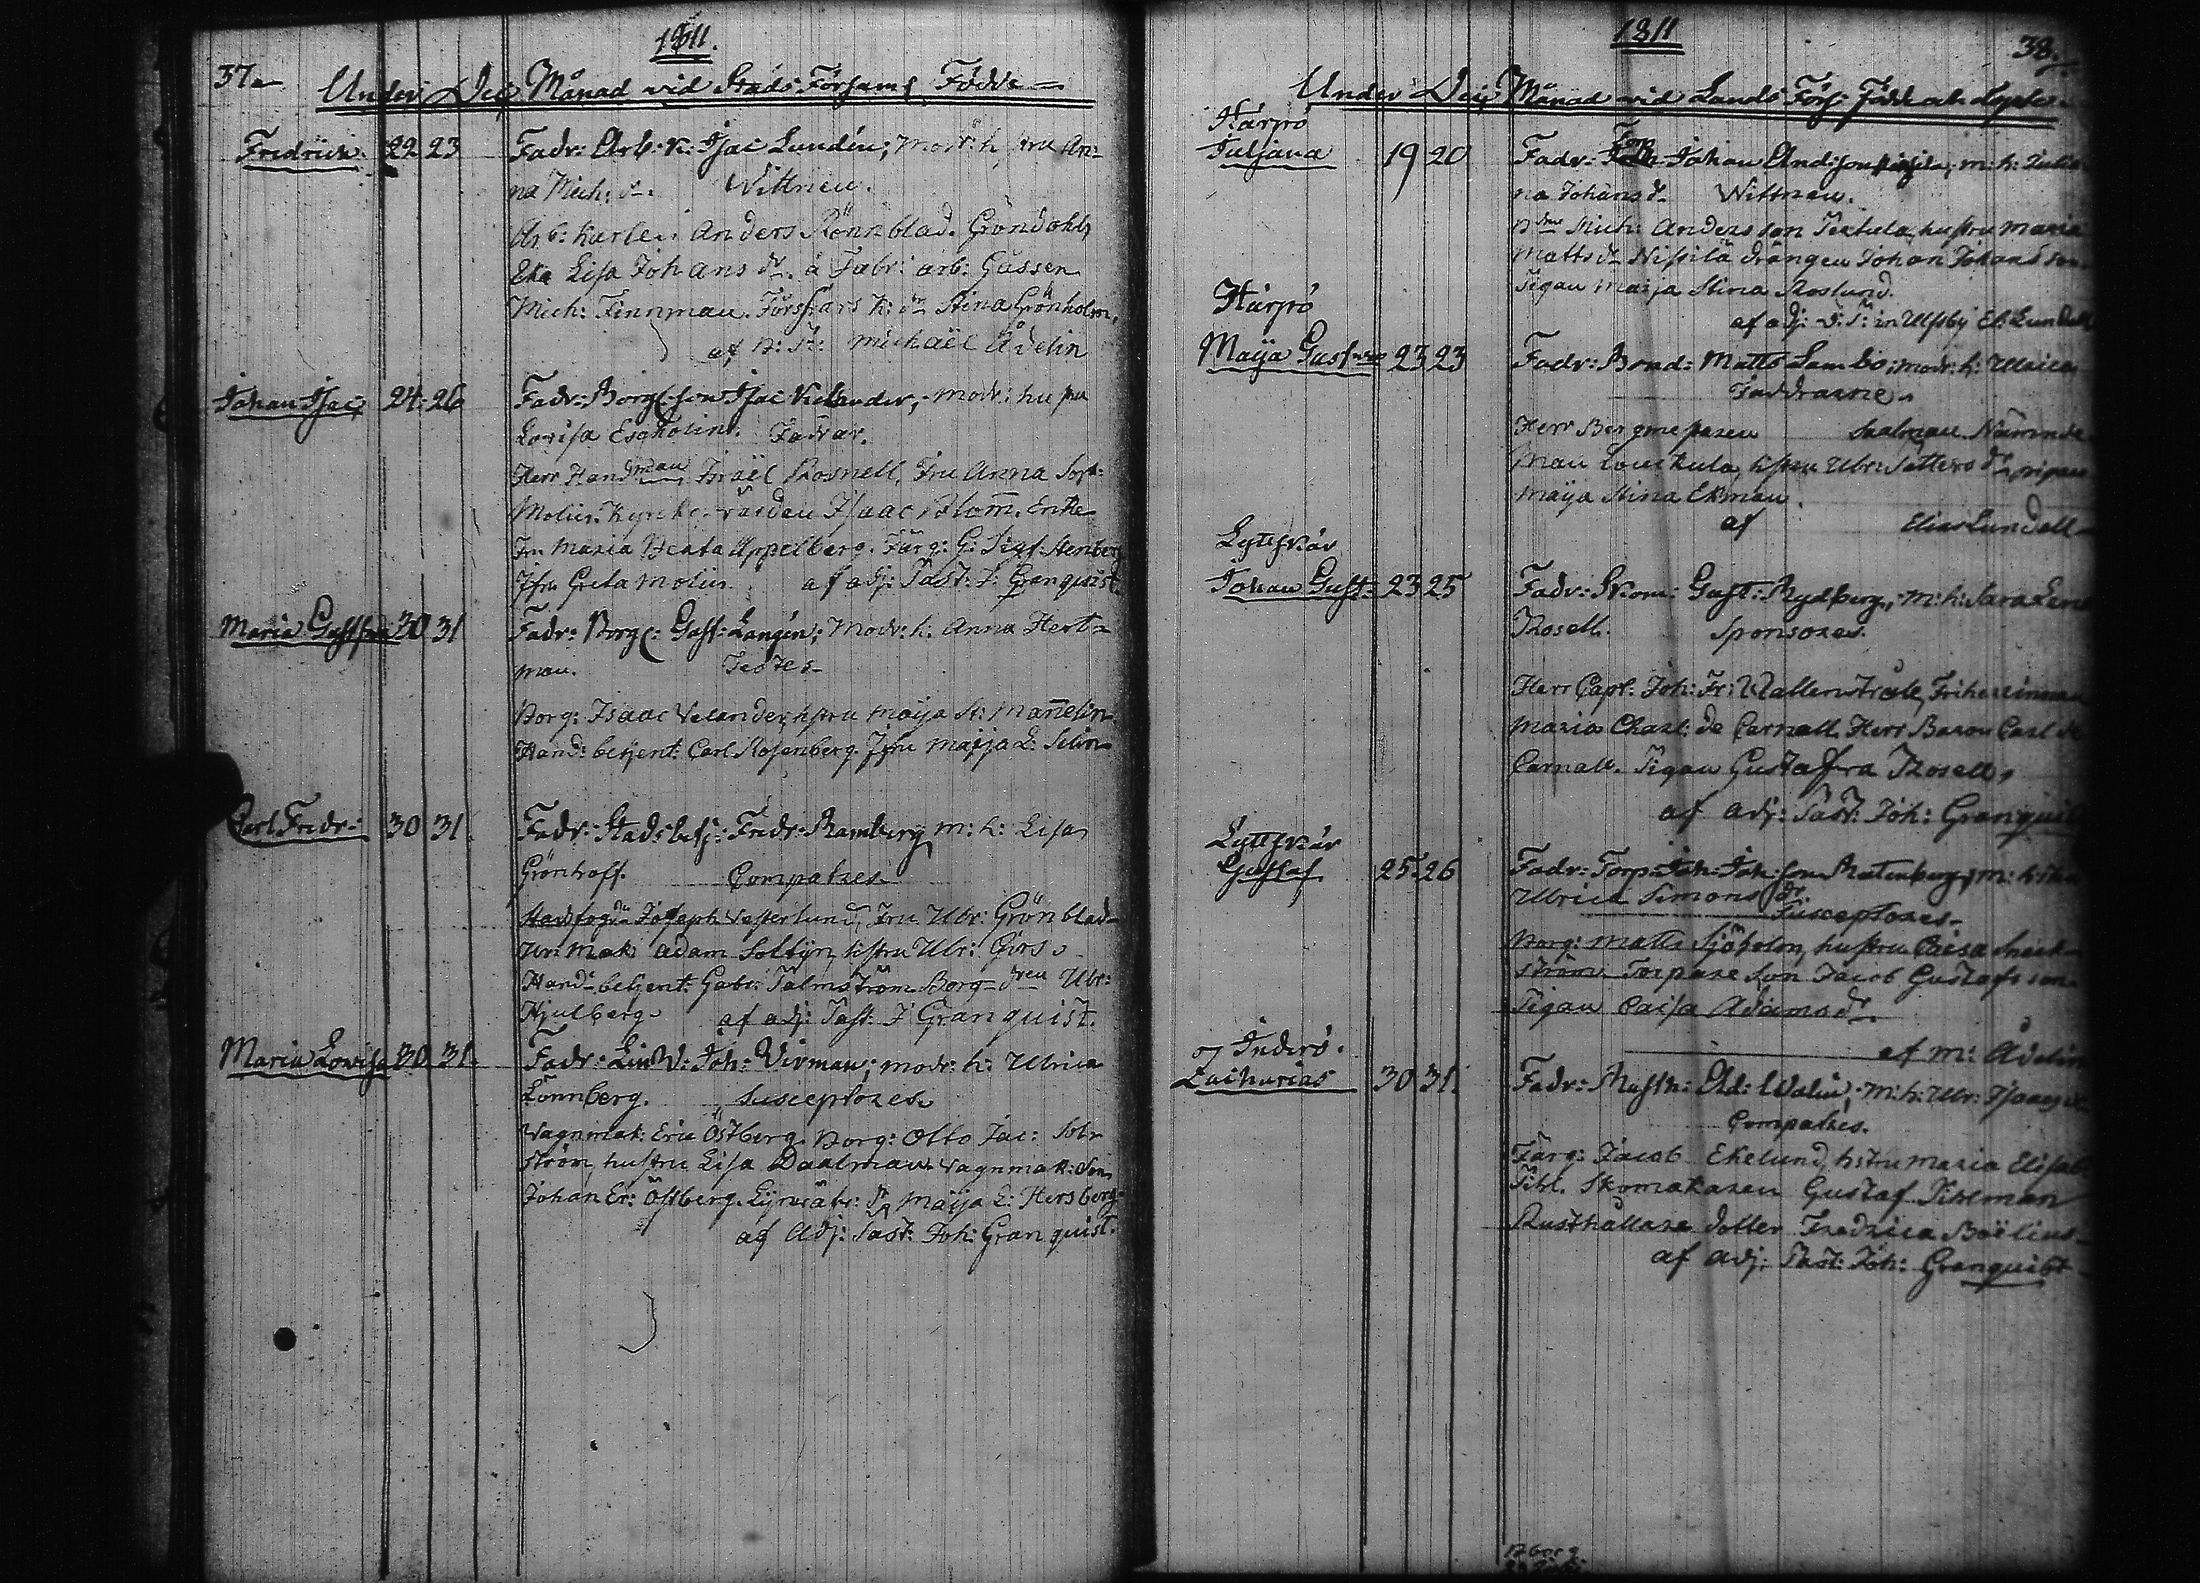 1811.
37.
Under Dec Månad vid Stads Församl Födde
Fredrich. 22 23 Fadr: Arb: k: Isac Lundén; modr: hustru An-
na Mich: dr. Wittnen.
Arb: karlen Anders Rönnblad. Gröndahls
Eka Lisa Johans dr. å Fabr: arb: Gossen
Mich: Finnman. Försk: dr Stina Grönholm,
af Michaël Ådelin
Johan Isac 24. 26 Fadr: Borg: son Isac Velander, modr: hustru
Lovisa Escholin. Fadrar.
Herr Handsman Israël Rosnell, Fru Anna Soph:
Molin. Kyrko-värden Isaac Blom. Enke
Fru Maria Beata Appelberg. Färg: G: Sigf: Stenberg
Jfru Greta Molin af adj: Past: J: Granquist.
Maria Gustfva 30 31 Fadr: Borg: Gust: Langén; Modr: h. Anna Hert-
man. Testes
Borg: Isaac Velander, hstru Maija St: Mannelin
Hand: betjent: Carl Rosenberg. Jfru Maija L: Selin
Carl Fredr: 30 31. Fadr: Stadsbetj: Fredr: Ramberg m: h: Lisa
Grönhoff. Compatres
Stadsfogd: Joseph Vesterlund, Fru Ulr: Grönblad
Ur: Mak: Adam Solbÿn, hstru Ulr: Girs
Hand: betjent: Gabr: Palmström Borg- dren Ulr:
Hjulberg. af adj: Past: J Granquist.
Maria Lovisa 30 31. Fadr: Joh: Virman; modr: h: Ulrica
Lönnberg. Susceptores
Vagnmak: Eric Östberg. Borg: Otto Jac: Söder-
ström, hustru Lisa Daalman. Vagnmak: Son
Johan Er: Östberg. dr Maija L: Hersberg
af Adj: Past: Joh: Granquist.
1811
38.
Under Dec Månad vid Lands Förs: Födde och Döpte
Härpö
Juliana 19 20 Fadr: Johan And:son m: h: Julia
na Johans dr Wittnen.
Mich: Andersson Pertula, hustru Maria
Matts dr Nissilä drängen Johan Johansson
Pigan Maija Stina Roslund.
af adj: i Ulfsby El: Lundell
Härpö
Maija Gustava 23 23 Fadr: Bond: Matts Lambo; modr: h: Ulrica
Faddrarne
Herr Bergmestaren Nämnde
man hstru Ulr: dr, pigan
Maija Stina Ekman.
af Elias Lundell
Lyttskär
Johan Gust: 23 25 Fadr: Skom: Gust: Rydberg, m: h: Sara
Rosell. Sponsores.
Herr Capt: Joh: Fr: Wallenstråle, Friherinnan
Maria Charl: de Carnall. Herr Baron Carl de
Carnall. Pigan Gustafva Rosell,
af adj: Past: Joh: Granquist
Lyttskär
Gustaf 25 26 Fadr: Torp: Joh: Joh:son m: hstru
Ulrica Simons dr.
Susceptores
Borg: Matts Sjöholm, hustru Caisa Sneck-
ström Torpare Son Jacob Gustafsson
Pigan Caisa Adams dr.
af M: Ådelin
Inderö.
Zacharias 30 31. Fadr: Rusth: Ad: Walin, m: h: Ulr: Isaacs dr
Compatres.
Färg: Jacob Ekelund, hstru Maria Elisab:
Pihl. Skomakaren Gustaf Pihlman
Rusthållare dotter Fredrica Boëlius
af adj: Past: Joh: Granquist